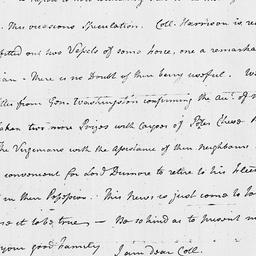 this occasions Speculation. Coll. Harrison is re
fitted out two Vessels of some force, one a remarka
There is no Doubt of their being usefull. W
from Gen. Washington confirming the Acct. of
taken two more Prizes with Cargoes of
The Virginians with the assistance of their Neighbours
convenient for Lord Dunmore to retire to his Fleet
in their Possession. This News is just come to
it to be true — Be so kind as to present m
your good Family I am dear Coll.